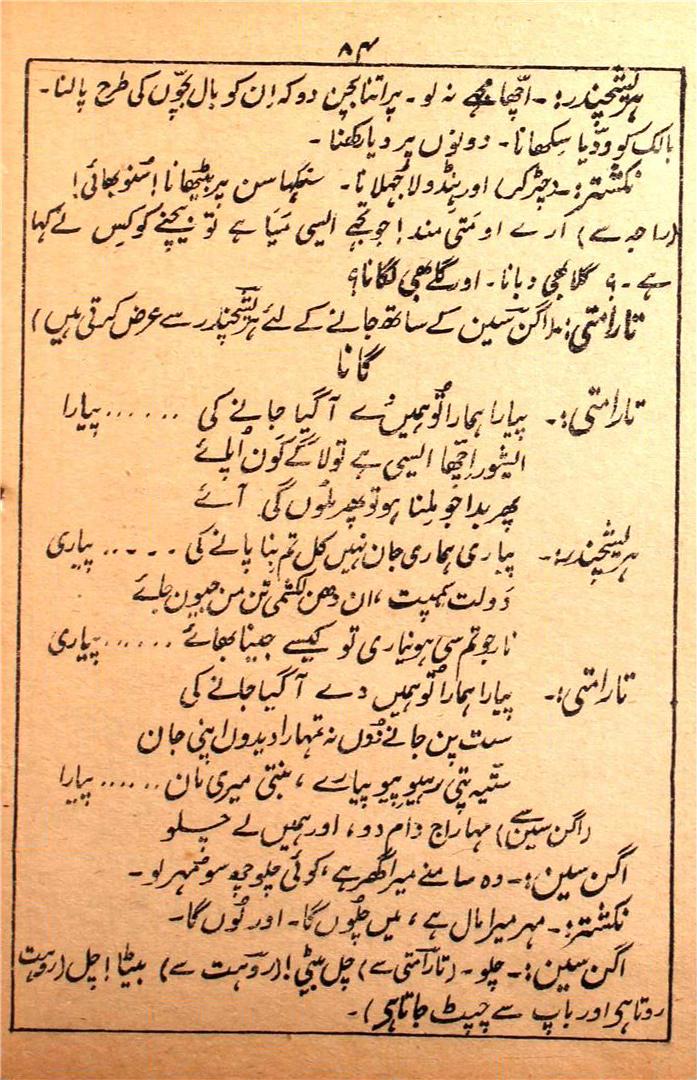 ۸۴
ہریشچندر:۔ اچھا مجھے نہ لو۔ پر اتنا بچن دو کہ اِن کو بال بچّوں کی طرح پالنا۔
بالک کو ودّیا سِکھانا۔ دونوں پر دیا رکھنا۔
نکشتر:۔ (چڑ کر) اور ہِنڈولا جُھلانا۔ سنگھاسن پر بٹھانا! سُنو بھائی!
(راجہ سے) ارے او متی مند! جو تجھے ایسی مَیَا ہے تو بیچنے کو کِس نے کہا
ہے۔؟ گلا بھی دبانا۔ اور گلے بھی لگانا؟
تارامتی:۔ (اگن سین کے ساتھ جانے کے لئے ہریشچندر سے عرض کرتی ہیں)
گانا
تارامتی:۔ پیارا ہمارا تُو ہمیں دے آگیا جانے کی ...... پیارا
ایشور اِچّھا ایسی ہے تو لاگے کون اُپائے
پھر بدا جو مِلنا ہو تو پھر مِلُوں گی آئے
ہریشچندر:۔ پیاری ہماری جان نہیں کل تم بِنا پانے کی ...... پیاری
دَولت سمپت، ان دھن لکشمی تن من جیون جائے
نار جو تم سی ہو نیاری تو کیسے جینا بھائے ...... پیاری
تارامتی:۔ پیارا ہمارا تُو ہمیں دے آگیا جانے کی
ست پن جانے نہ دُوں نہ تمہارا دیدوں اپنی جان
ستّیہ پتی رہیو پیو پیارے، بنتی میری مان ...... پیارا
(اگن سین سے) مہاراج دام دو، اور ہمیں لے چلو
اگن سین:۔ وہ سامنے میرا گھر ہے، کوئی چلو مجھ سو مُہر لو۔
نکشتر:۔ مہر میرا مال ہے، میں چلُوں گا۔ اور لُوں گا۔
اگن سین:۔ چلو۔ (تارامتی سے) چل بیٹی! (روہت سے) بیٹا! چل (روہت
روتا ہی اور باپ سے چپٹ جاتا ہی)۔